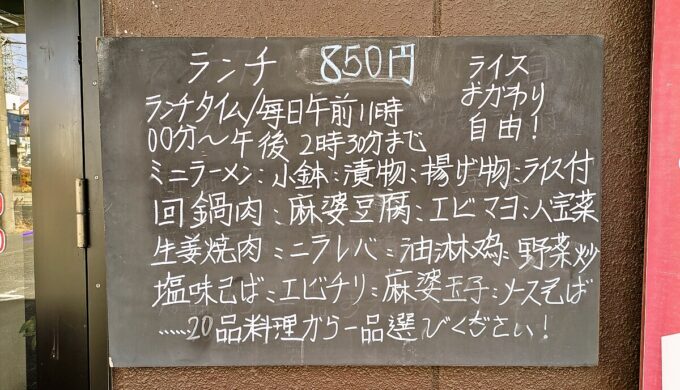 ランチ 850円
ライス
おかわり
自由！
ランチタイム/毎日午前11時
00分〜午後2時30分まで
ミニラーメン:小鉢:漬物:揚げ物:ライス付
回鍋肉:麻婆豆腐:エビマヨ:八宝菜
生姜焼肉:ニラレバ:油淋鶏:野菜炒
塩味そば:エビチリ:麻婆玉子:ソースそば
……20品料理から一品選びください！